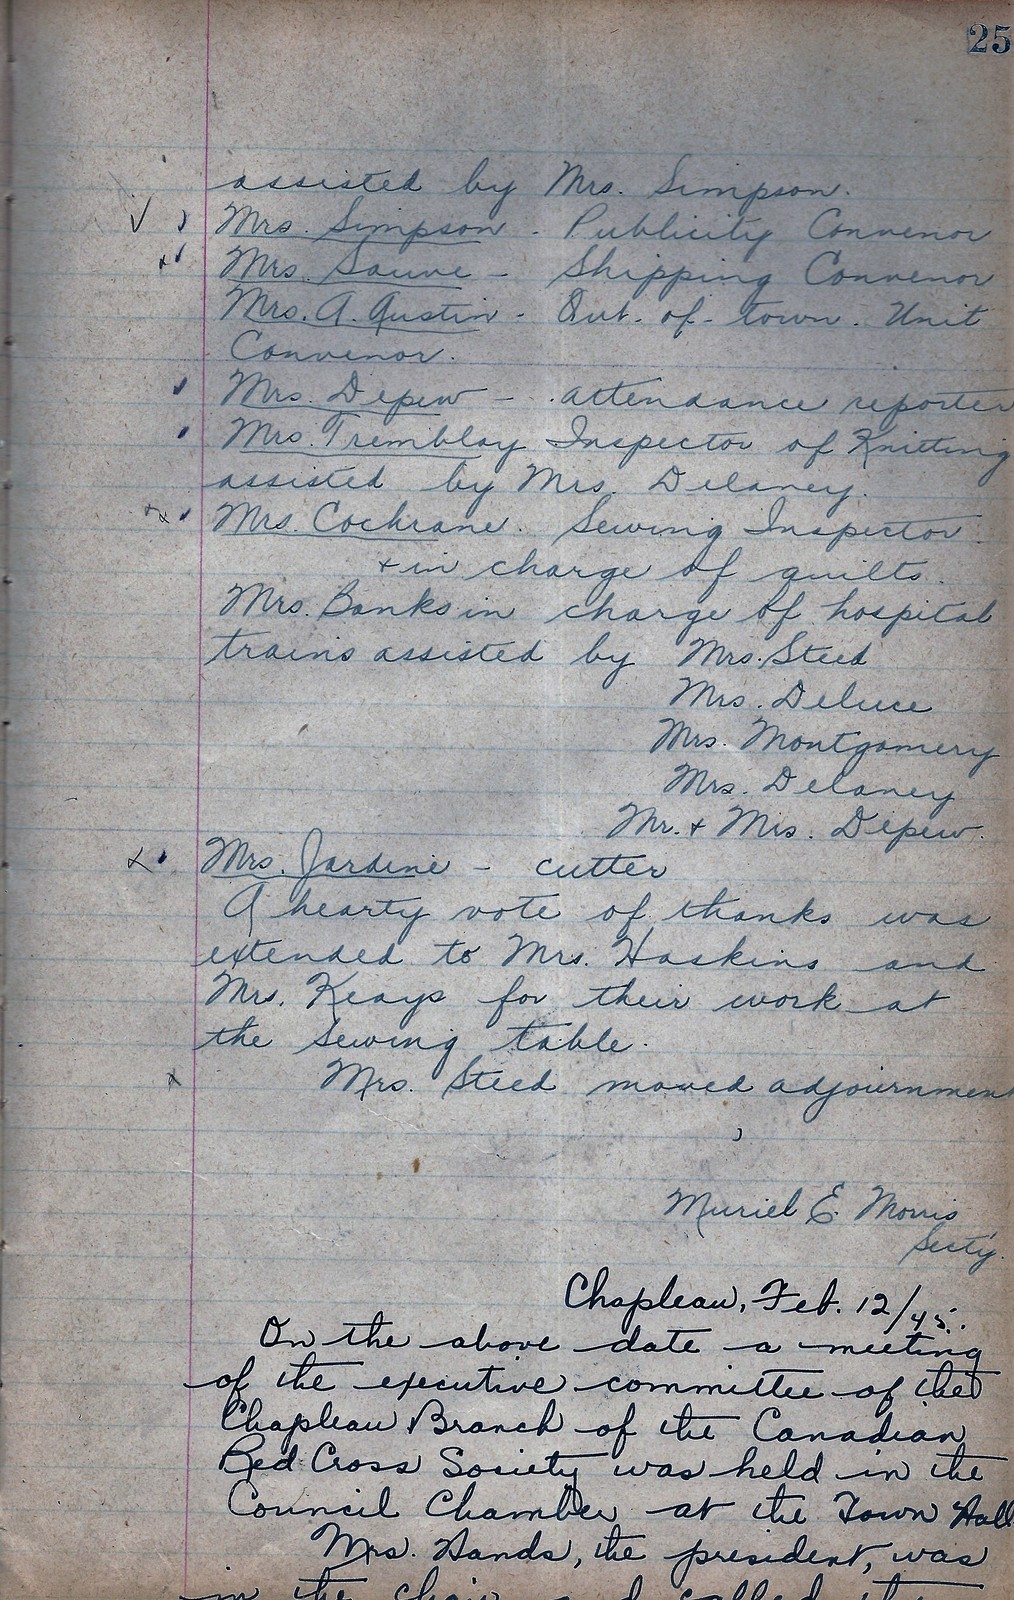 25
assisted by Mrs. Simpson.
✓ Mrs. Simpson - Publicity Convenor
x Mrs. Sauve - Shipping Convenor
Mrs. A. Austin - Out-of-town. Unit
Convenor.
Mrs. Depew - attendance reporter
Mrs. Tremblay Inspector of Knitting
assisted by Mrs. Delaney.
Mrs. Cochrane. Sewing Inspector.
+ in charge of quilts.
Mrs. Banks in charge of hospital
trains assisted by Mrs. Steed
Mrs. Deluce
Mrs. Montgomery
Mrs. Delaney
Mr. + Mrs. Depew.
x Mrs. Jardine - cutter
A hearty vote of thanks was
extended to Mrs. Haskins and
Mrs. Keays for their work at
the Sewing table.
x Mrs. Steed moved adjournment
Muriel E. Morris
Secty.
Chapleau, Feb. 12/45.
On the above date a meeting
of the executive committee of the
Chapleau Branch of the Canadian
Red Cross Society was held in the
Council Chamber at the Town Hall
Mrs. Hands, the president, was
in the chair and called the